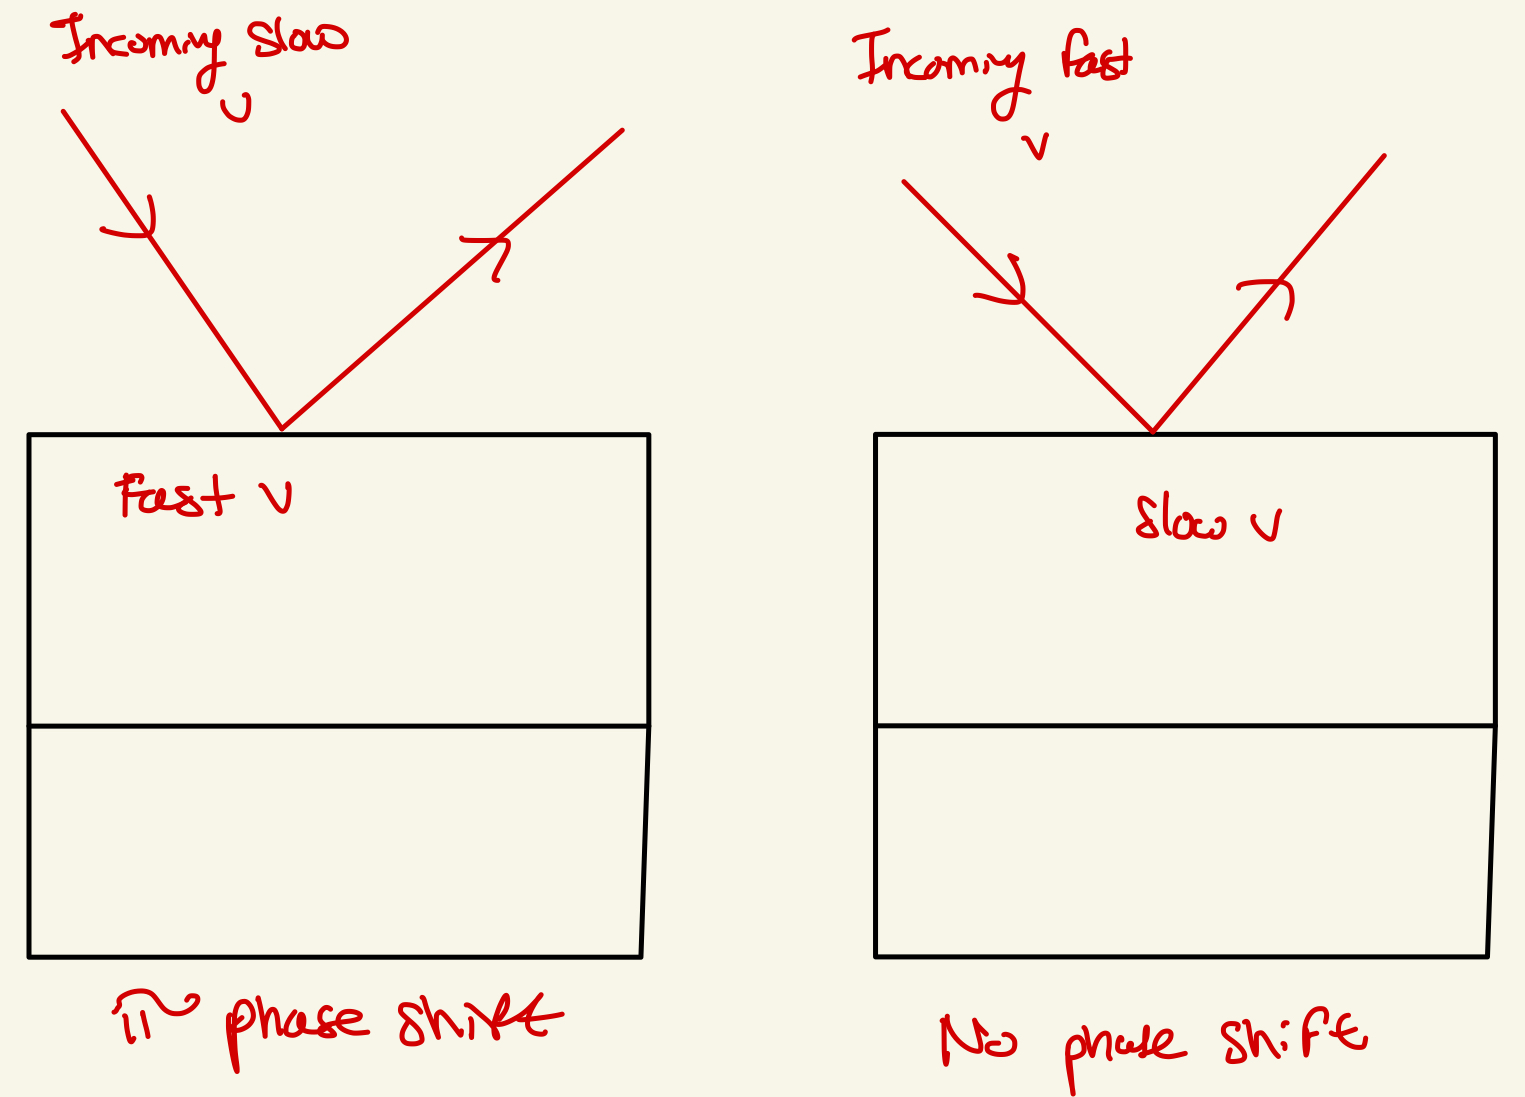 Incoming slow
v
Fast v
π phase shift
Incoming fast
v
Slow v
No phase shift